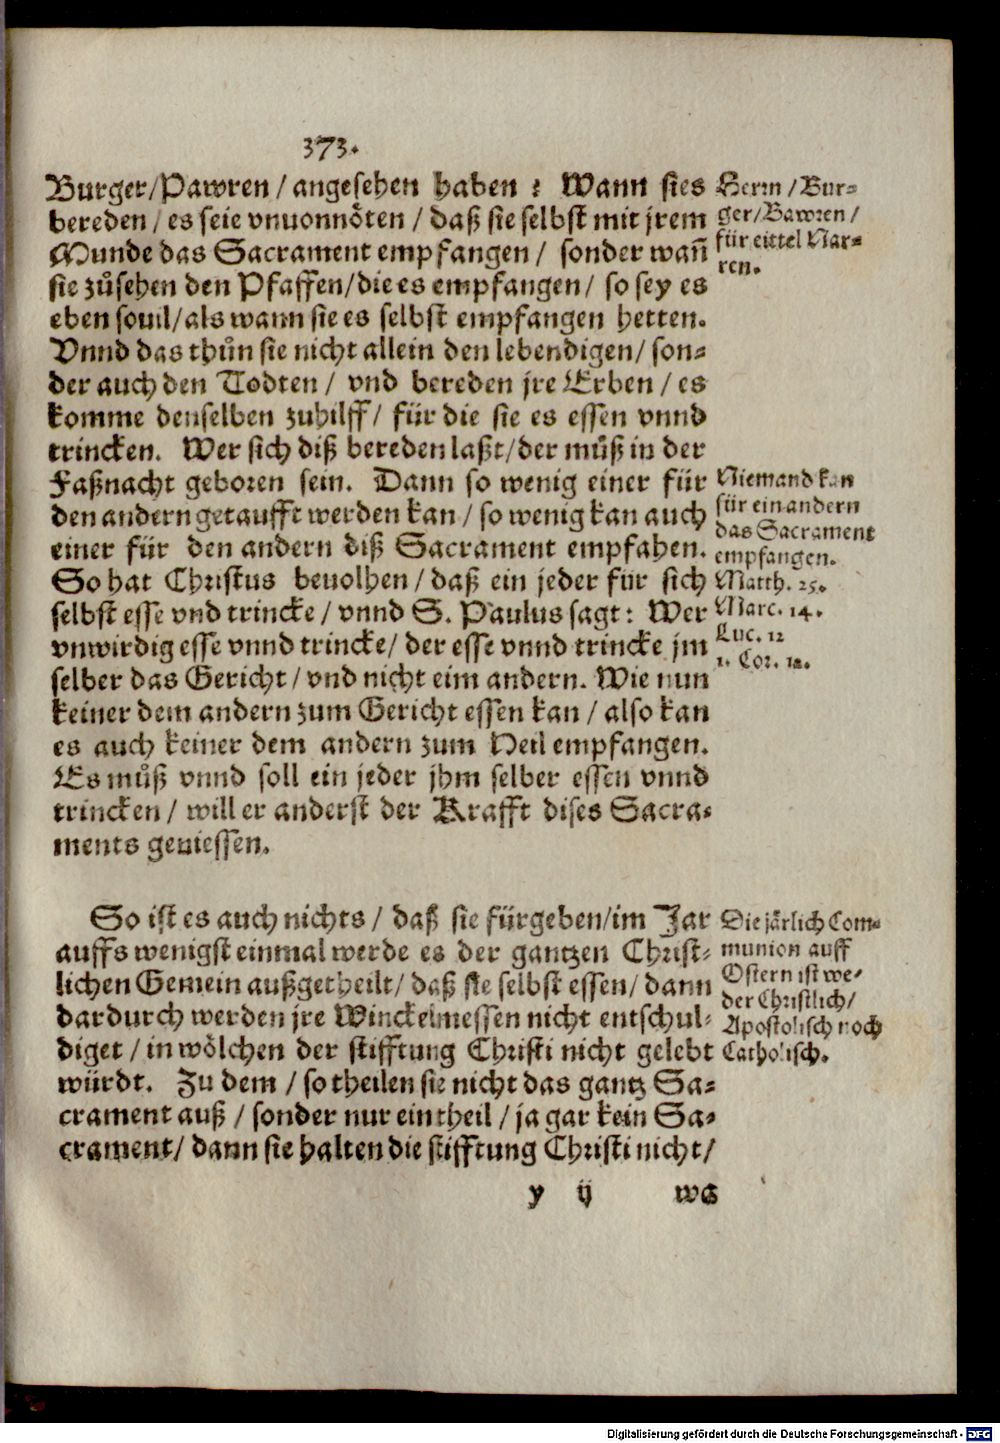 373.
Burger/Pawren / angesehen haben ? Wann sies
bereden / es seie vnuonnöten / daß sie selbst mit jrem
Munde das Sacrament empfangen / sonder wañ
sie zůsehen den Pfaffen/die es empfangen/ so sey es
eben souil/als wann sie es selbst empfangen hetten.
Vnnd das thůn sie nicht allein den lebendigen/ son-
der auch den Todten / vnd bereden jre Erben / es
komme denselben zuhilff/ für die sie es essen vnnd
trincken. Wer sich diß bereden laßt/der můß in der
Faßnacht geboren sein. Dann so wenig einer für
den andern getaufft werden kan / so wenig kan auch
einer für den andern diß Sacrament empfahen.
So hat Christus beuolhen / daß ein jeder für sich
selbst esse vnd trincke / vnnd S. Paulus sagt: Wer
vnwirdig esse vnnd trincke/ der esse vnnd trincke jm
selber das Gericht / vnd nicht eim andern. Wie nun
keiner dem andern zum Gericht essen kan / also kan
es auch keiner dem andern zum Heil empfangen.
Es můß vnnd soll ein jeder jhm selber essen vnnd
trincken / will er anderst der Krafft dises Sacra-
ments geniessen.
Herrn / Bur-
ger/Bawren /
für eittel Nar-
ren.
Niemand kan
für ein andern
das Sacrament
empfangen.
Matth. 25.
Marc. 14.
Luc. 12
1. Cor. 12.
So ist es auch nichts / daß sie fürgeben/im Jar
auffs wenigst einmal werde es der gantzen Christ-
lichen Gemein außgetheilt/ daß sie selbst essen/ dann
dardurch werden jre Winckelmessen nicht entschul-
diget / in wölchen der stifftung Christi nicht gelebt
würdt. Zu dem / so theilen sie nicht das gantz Sa-
crament auß / sonder nur ein theil / ja gar kein Sa-
crament/ dann sie halten die stifftung Christi nicht/
Die järlich Com-
munion auff
Ostern ist we-
der Christlich/
Apostolisch noch
Catholisch.
y ij was
Digitalisierung gefördert durch die Deutsche Forschungsgemeinschaft - DFG